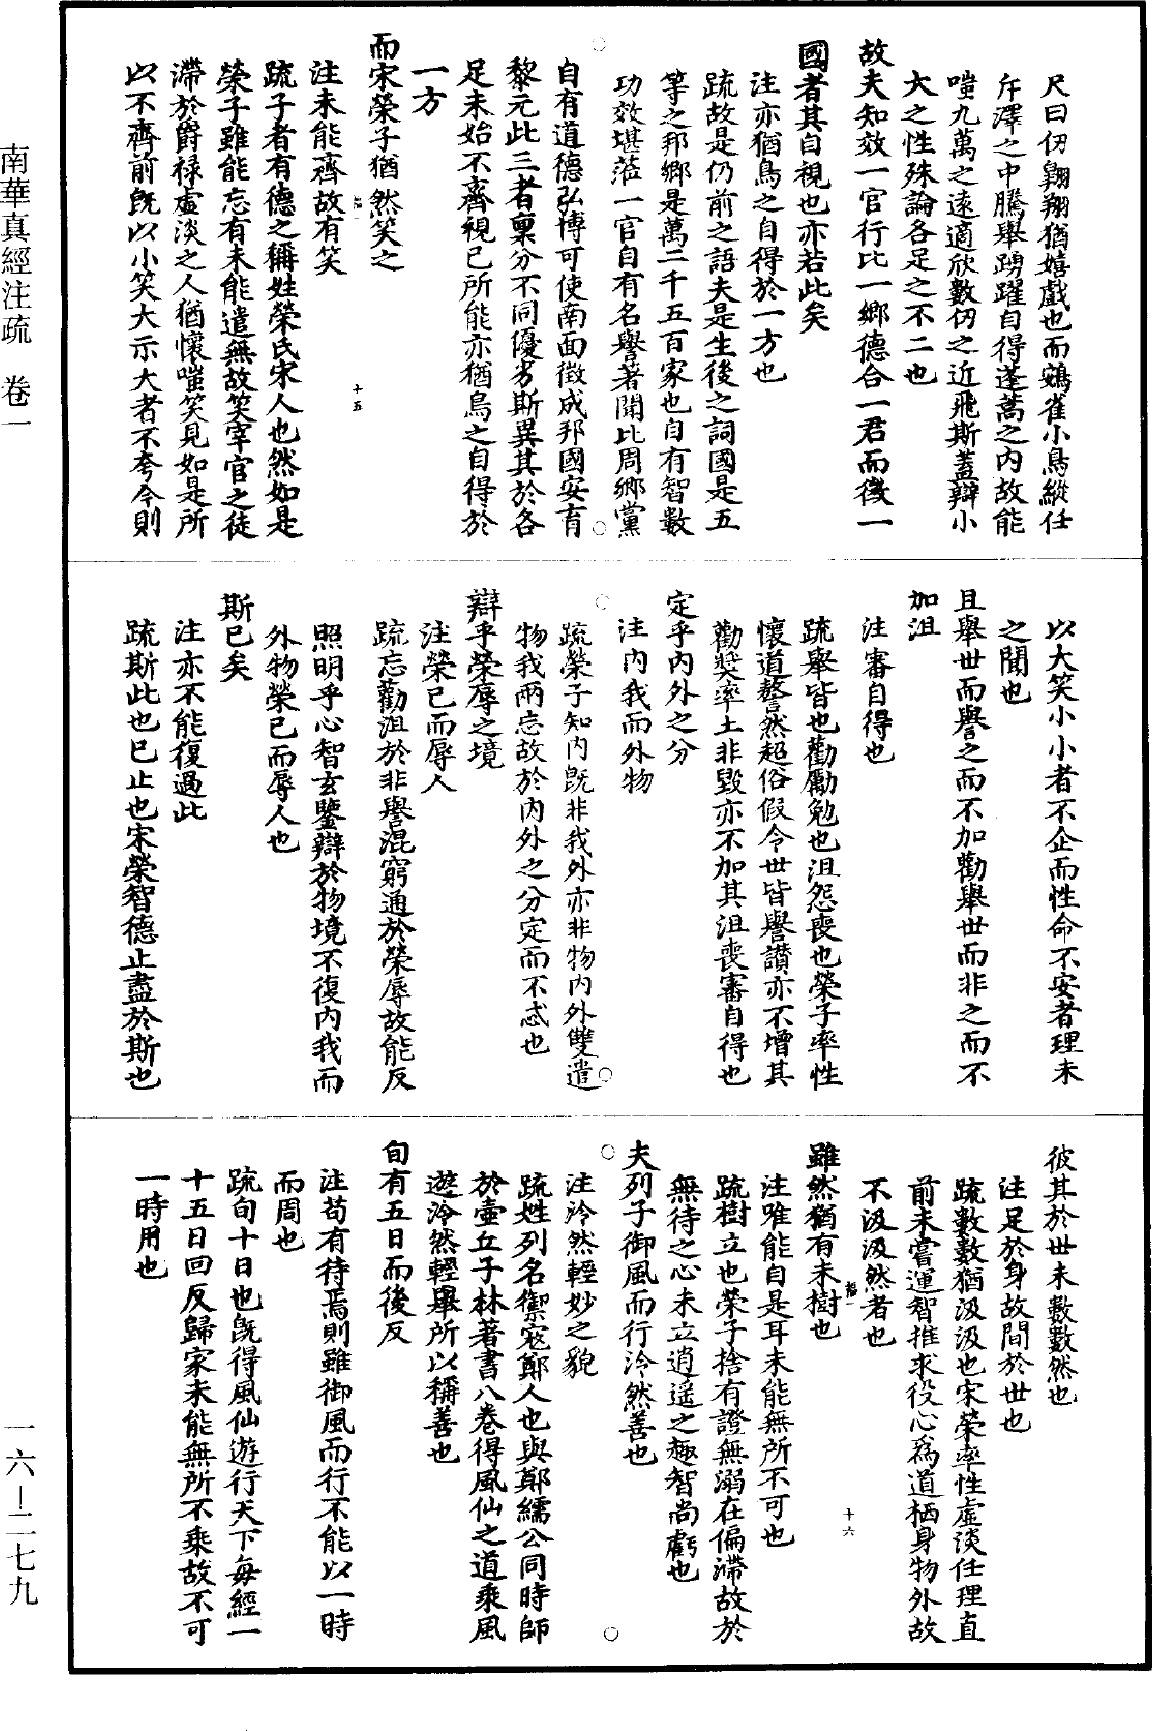 尺曰仞翱翔猶嬉戲也而鴳雀小鳥縱任
斥澤之中騰舉踴躍自得蓬蒿之内故能
嗤九萬之遠適欣數仞之近飛斯蓋辯小
大之性殊論各足之不二也
故夫知效一官行比一鄉德合一君而徵一
國者其自視也亦若此矣
注亦猶鳥之自得於一方也
疏故是仍前之語夫是生後之詞國是五
等之邦鄉是萬二千五百家也自有智數
功效堪蒞一官自有名譽著聞比周鄉黨
自有道德弘博可使南面徵成邦國安育
黎元此三者稟分不同優劣斯異其於各
足未始不齊視已所能亦猶鳥之自得於
一方
而宋榮子猶然笑之
注未能齊故有笑
疏子者有德之稱姓榮氏宋人也然如是
榮子雖能忘有未能遣無故笑宰官之徒
滯於爵禄虛淡之人猶懷嗤笑見如是所
以不齊前既以小笑大示大者不夸今則
十五
以大笑小小者不企而性命不安者理未
之聞也
且舉世而譽之而不加勸舉世而非之而不
加沮
注審自得也
疏舉皆也勸勵勉也沮怨喪也榮子率性
懷道謷然超俗假令世皆譽讃亦不增其
勸奬率土非毀亦不加其沮喪審自得也
定乎内外之分
注内我而外物
疏榮子知内既非我外亦非物内外雙遣
物我兩忘故於内外之分定而不忒也
辯乎榮辱之境
注榮已而辱人
疏忘勸沮於非譽混窮通於榮辱故能反
照明乎心智玄鑒辯於物境不復内我而
外物榮已而辱人也
斯已矣
注亦不能復過此
疏斯此也已止也宋榮智德止盡於斯也
彼其於世未數數然也
注足於身故間於世也
疏數數猶汲汲也宋榮率性虛淡任理直
前未嘗運智推求役心為道栖身物外故
不汲汲然者也
雖然猶有未樹也
注唯能自是耳未能無所不可也
疏樹立也榮子捨有證無溺在偏滯故於
無待之心未立逍遥之趣智尚虧也
十六
夫列子御風而行泠然善也
注泠然輕妙之貌
疏姓列名禦寇鄭人也與鄭繻公同時師
於壺丘子林著書八卷得風仙之道乘風
遊泠然輕舉所以稱善也
旬有五日而後反
注苟有待焉則雖御風而行不能以一時
而周也
疏旬十日也既得風仙遊行天下每經一
十五日回反歸家未能無所不乘故不可
一時用也
南華真經注疏　卷一
一六—二七九